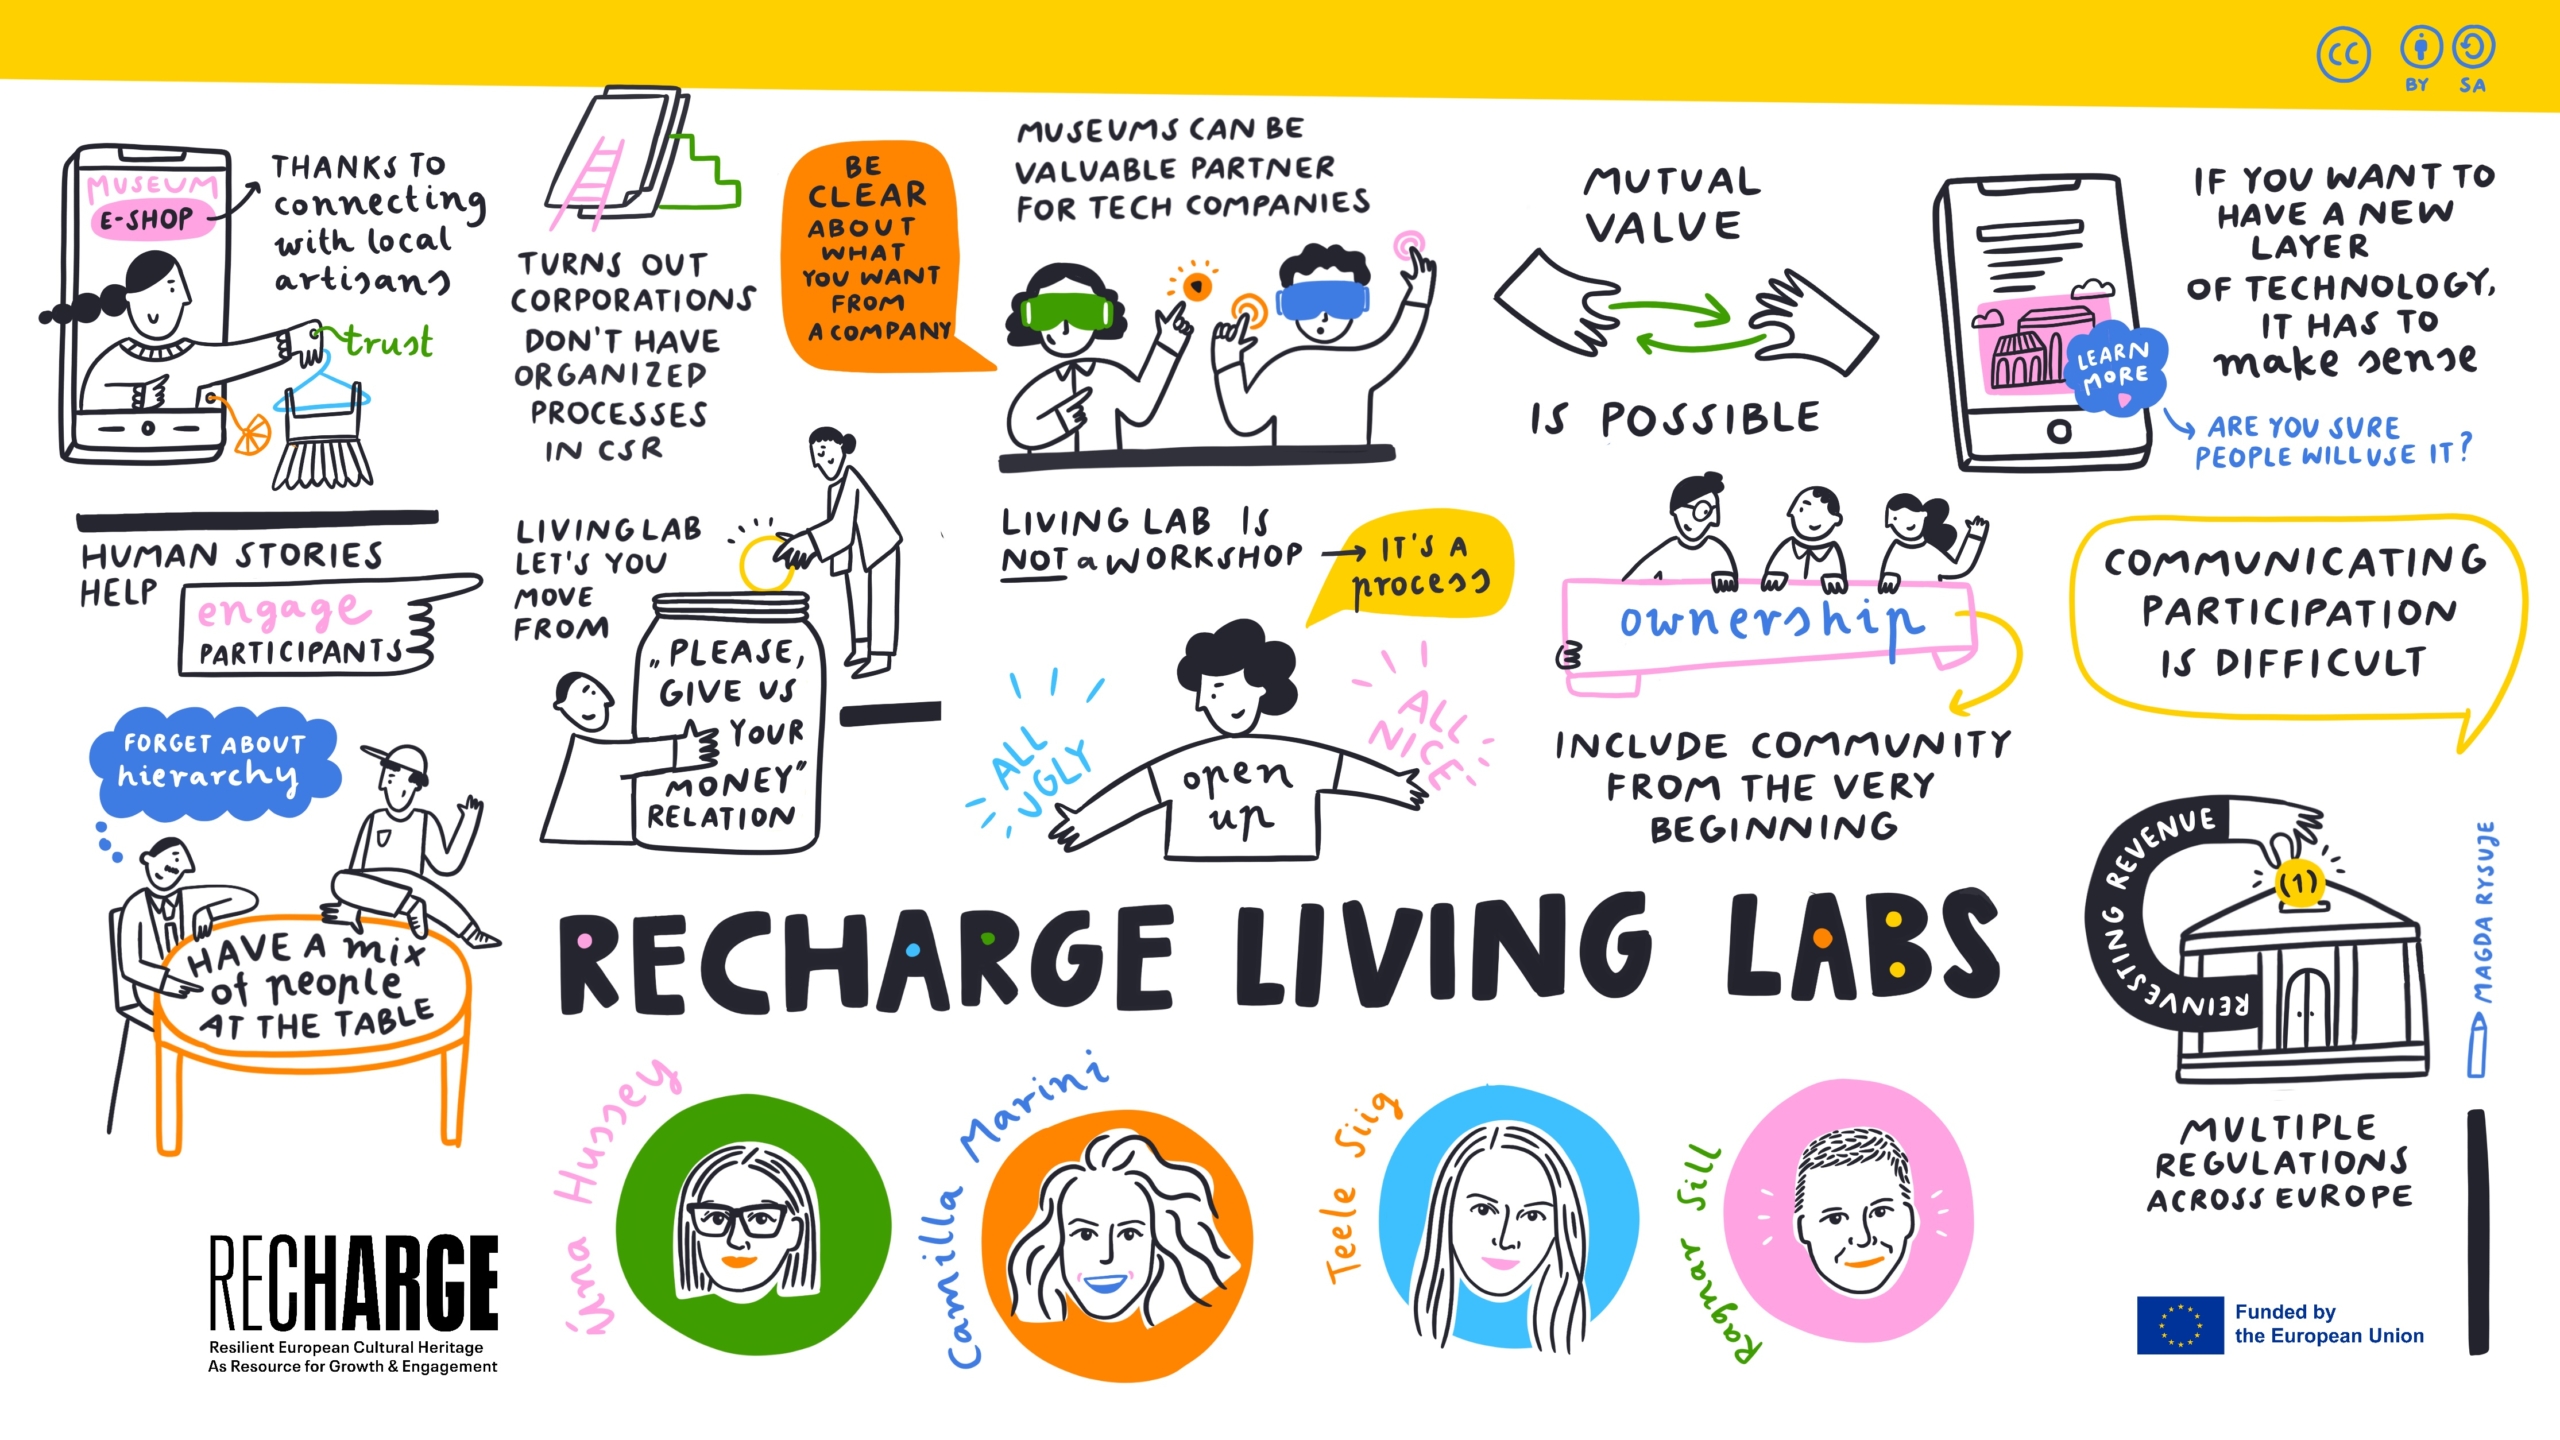 CC
BY SA
MUSEUM
E-SHOP
THANKS TO
connecting
with local
artisans
trust
TURNS OUT
CORPORATIONS
DON'T HAVE
ORGANIZED
PROCESSES
IN CSR
BE
CLEAR
ABOUT
WHAT
YOU WANT
FROM
A COMPANY
MUSEUMS CAN BE
VALUABLE PARTNER
FOR TECH COMPANIES
MUTUAL
VALUE
IS POSSIBLE
IF YOU WANT TO
HAVE A NEW
LAYER
OF TECHNOLOGY,
IT HAS TO
make sense
LEARN
MORE
ARE YOU SURE
PEOPLE WILL USE IT?
HUMAN STORIES
HELP
engage
PARTICIPANTS
LIVING LAB
LET'S YOU
MOVE
FROM
„PLEASE,
GIVE US
YOUR
MONEY"
RELATION
LIVING LAB IS
NOT a WORKSHOP
IT'S A
process
ALL
UGLY
open
up
ALL
NICE
ownership
INCLUDE COMMUNITY
FROM THE VERY
BEGINNING
COMMUNICATING
PARTICIPATION
IS DIFFICULT
FORGET ABOUT
hierarchy
HAVE A mix
of people
AT THE TABLE
RECHARGE LIVING LABS
REINVESTING REVENUE
(1)
MAGDA RYSUJE
MULTIPLE
REGULATIONS
ACROSS EUROPE
Úna Hussey
Camilla Marini
Teele Siig
Ragnar Siil
RECHARGE
Resilient European Cultural Heritage
As Resource for Growth & Engagement
Funded by
the European Union